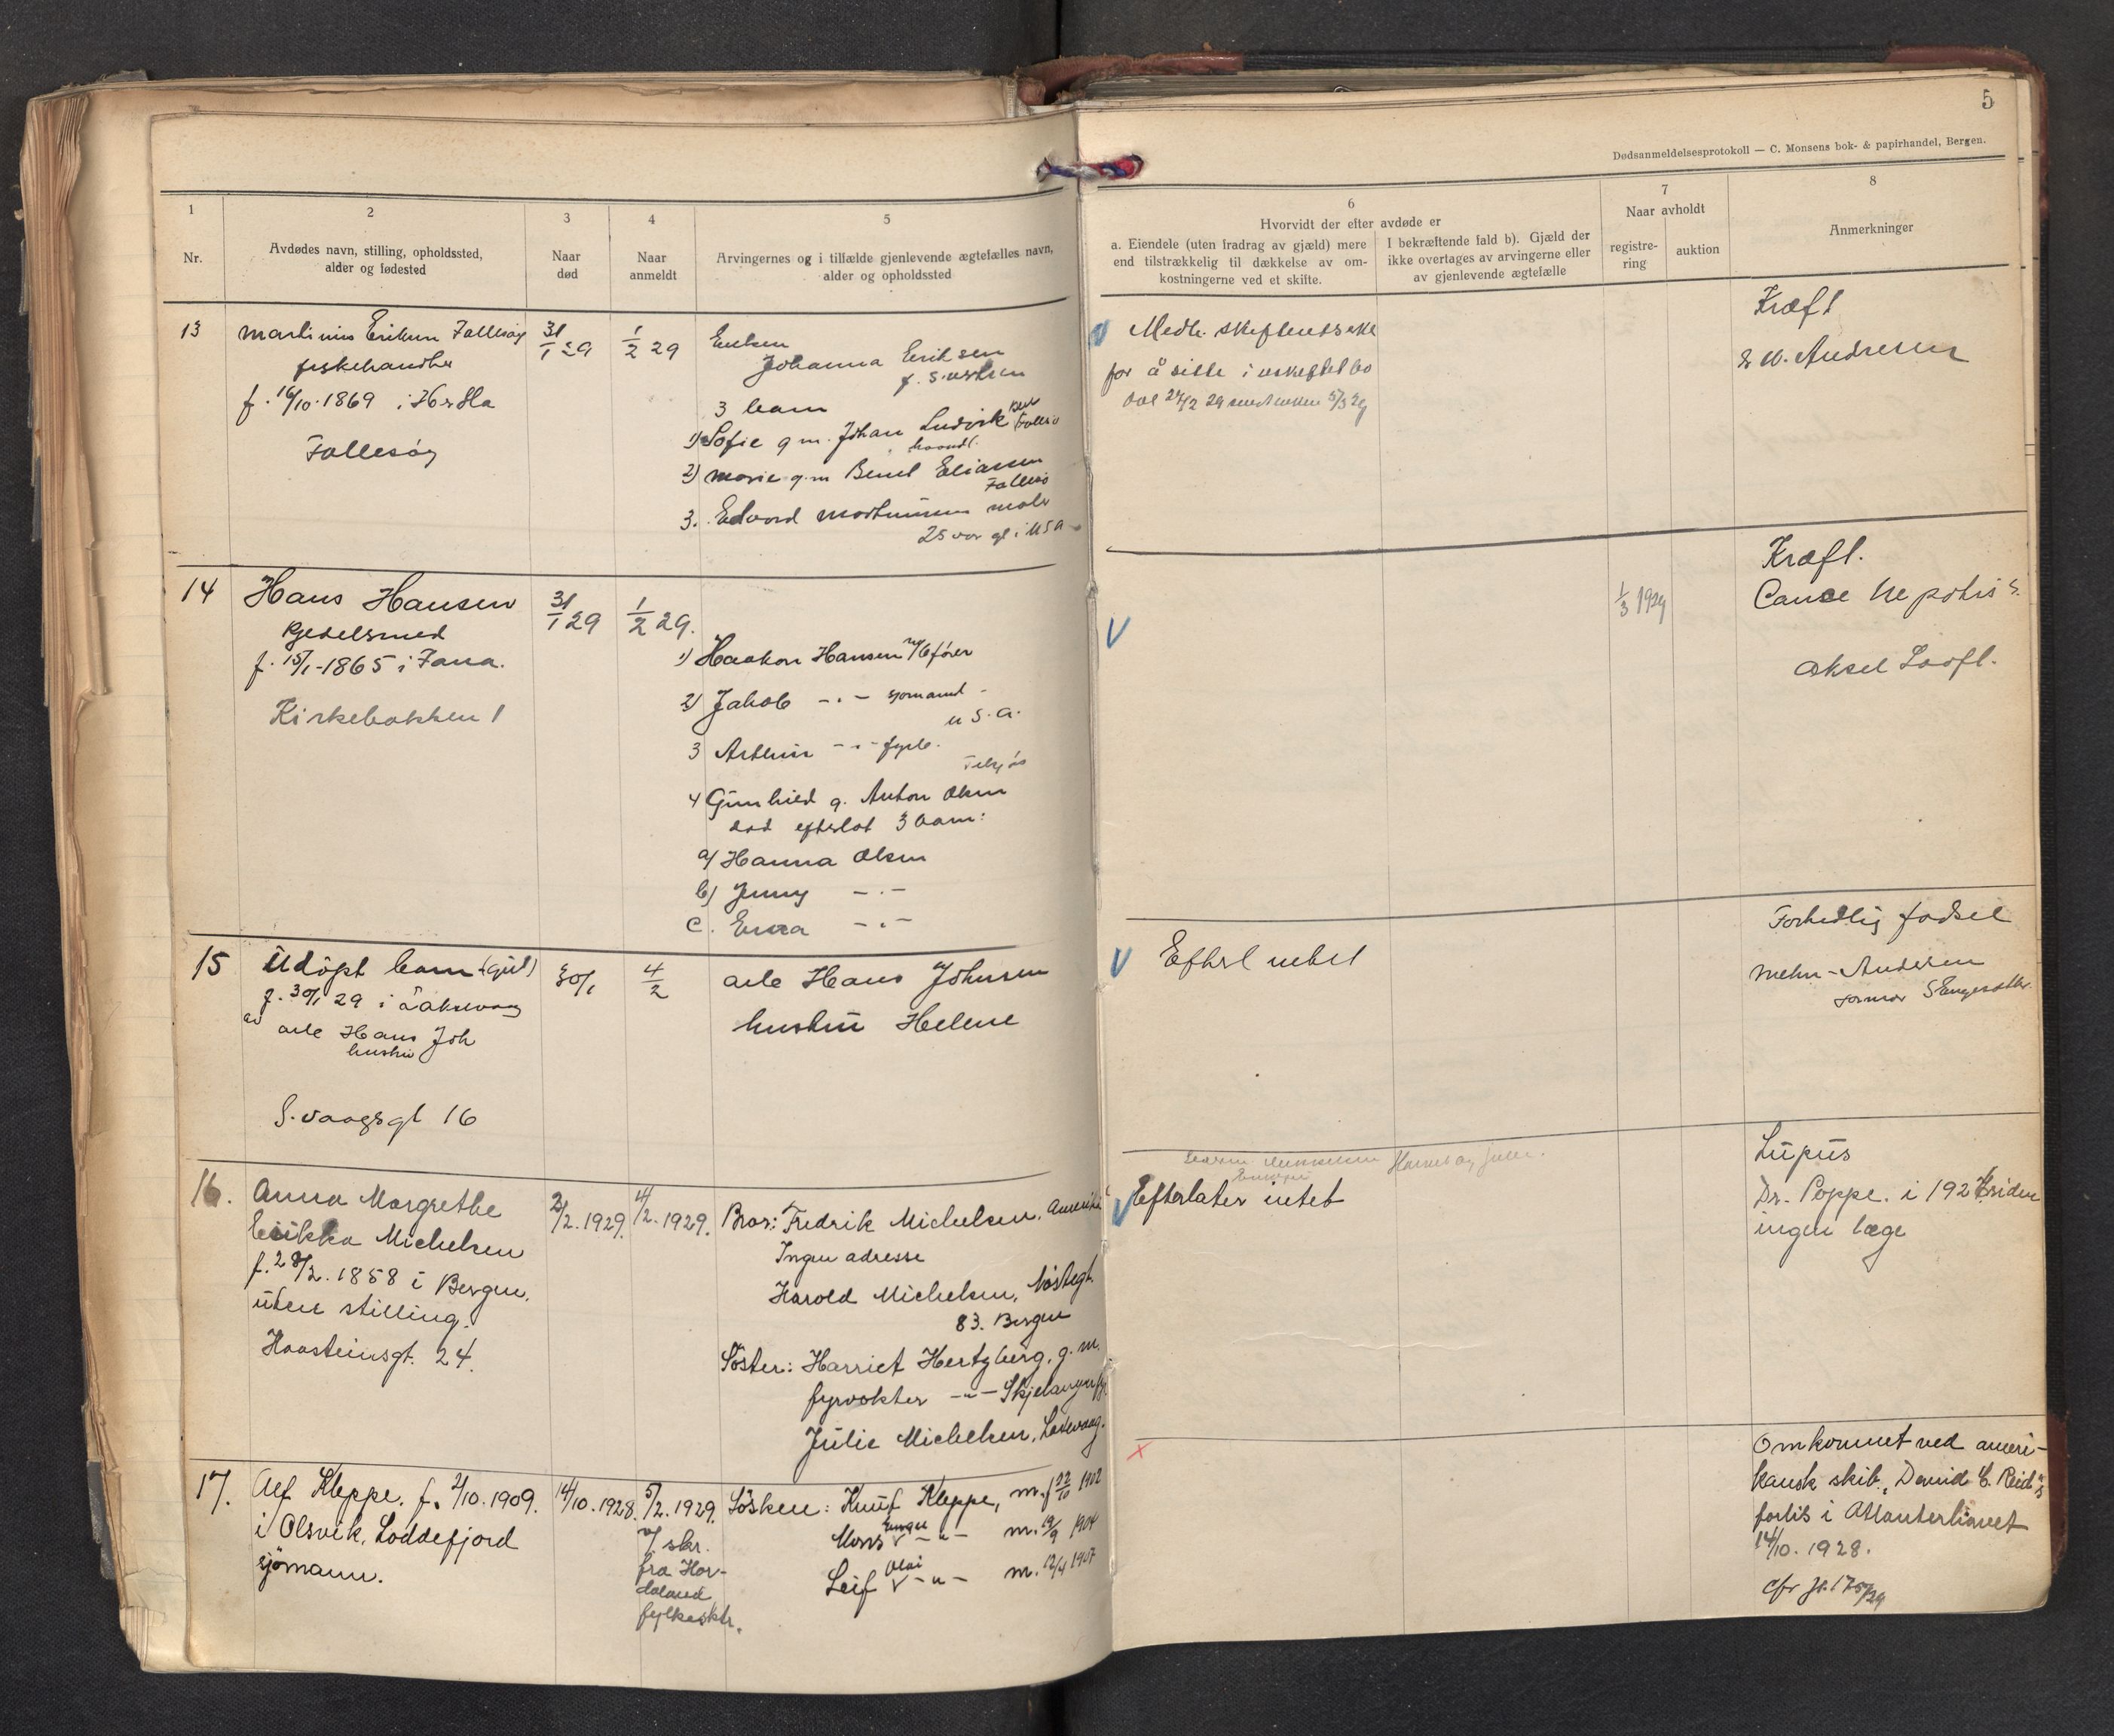 5
Dødsanmeldelsesprotokoll — C. Monsens bok- & papirhandel, Bergen.
1
Nr.
2
Avdødes navn, stilling, opholdssted,
alder og fødested
3
Naar
død
4
Naar
anmeldt
5
Arvingernes og i tilfælde gjenlevende ægtefælles navn,
alder og opholdssted
6
Hvorvidt der efter avdøde er
a. Eiendele (uten fradrag av gjæld) mere
end tilstrækkelig til dækkelse av om-
kostningerne ved et skifte.
I bekræftende fald b). Gjæld der
ikke overtages av arvingerne eller
av gjenlevende ægtefælle
7
Naar avholdt
registre-
ring
auktion
8
Anmerkninger
13
Martinius Eriksen Follesøy
fiskehandler
f. 16/10. 1869 i Herdla
Follesøy
31/1 29
1/2 29
Enken
Johanna Eriksen
3 barn
1) Sofie g m. Johan Ludvik
2) Marie g. m Bernt Eliassen
Follesø
3. Edvard Martinussen maler
25 aar gl i U S A
V Medh. skifteretsekl
for å sitte i uskiftet bo
Kræft
Andresen
14
Hans Hansen
Kjedelsmed
f. 15/1-1865 i Fana.
Kirkebakken 1
31/1 29
1/2 29.
1) Haakon Hansen
2) Jakob -"- sjømand -
U S. A.
3 Arthur -"- fyrb.
4 Gunhild g. Anton Olsen
død efterlot 3 barn:
a) Hanna Olsen
b) Jenny -"-
c. Erna -"-
V
1/3 1929
Kræft.
Aksel Looft.
15
Udøpt barn (gut)
f. 30/1 29 i Laksevaag
av arb Hans Joh
hustru
S. vaagsgt 16
30/1
4/2
arb Hans Johnsen
hustru Helene
V Efterl intet
Forhedlig fødsel
Mehn-Andersen
16.
Anna Margrethe
Michelsen
f. 28/2. 1858 i Bergen.
uten stilling.
Haasteinsgt. 24.
2/2. 1929.
4/2. 1929.
Bror: Fredrik Michelsen, Amerika
Ingen adresse
Harold Michelsen, Nøstegt.
83. Bergen
Søster: Harriet Hertzberg, g. m.
fyrvokter -"- Skjelanger fyr
Julie Michelsen, Laksevaag.
V Efterlater intet
Lupus
Dr. Poppe. i 1924 siden
ingen læge
17.
Alf Kleppe. f. 2/10. 1909.
i Olsvik, Loddefjord
sjømann.
14/10. 1928.
5/2. 1929.
v/ skr.
fra Hor-
daland
fylkesktr.
Søsken: Knut Kleppe, m. f 22/10 1902
Mons -"- m. 19/9 1904
Leif Olai -"- m. 12/4 1907
x
Omkommet ved ameri-
kansk skib "David C. Reid"s
forlis i Atlanterhavet
14/10. 1928.
cfr js. 175/29